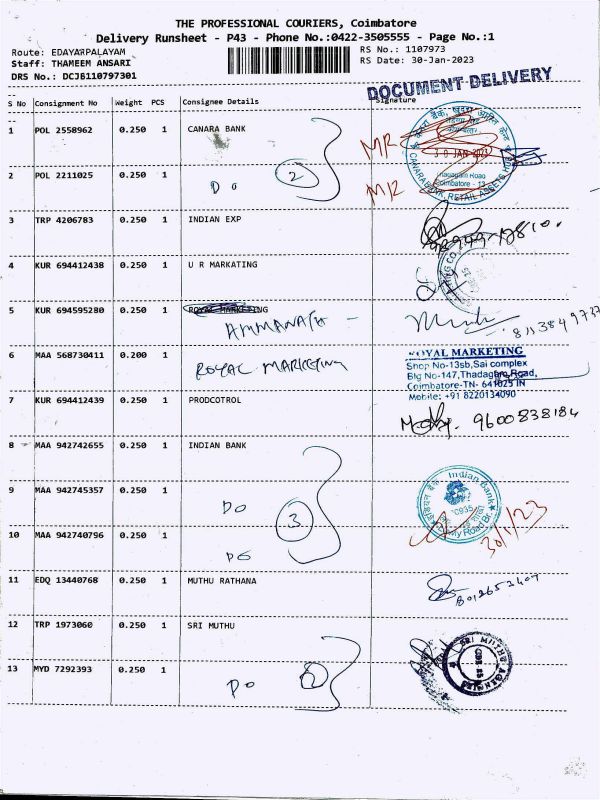 THE PROFESSIONAL COURIERS, Coimbatore
Delivery Runsheet - P43 - Phone No.:0422-3505555 - Page No.:1
Route: EDAYARPALAYAM
RS No.: 1107973
Staff: THAMEEM ANSARI
RS Date: 30-Jan-2023
DRS No.: DCJB110797301
DOCUMENT DELIVERY
S No Consignment No Weight PCS Consignee Details Signature
1 POL 2558962 0.250 1 CANARA BANK
MR
30 JAN 2023
2 POL 2211025 0.250 1 Do 2
MR
Thadagam Road
Coimbatore - 13
CANARA BANK, RETAIL ASSETS HUB
3 TRP 4206783 0.250 1 INDIAN EXP
4 KUR 694412438 0.250 1 U R MARKATING
5 KUR 694595280 0.250 1 ROYAL MARKETING
AMMANATH -
6 MAA 568730411 0.200 1 ROYAL MARKETING
ROYAL MARKETING
Shop No-13sb,Sai complex
Blg No-147,Thadagam Road,
Coimbatore-TN- 641025 IN
Mobile: +91 8220134090
7 KUR 694412439 0.250 1 PRODCOTROL
9600838184
8 MAA 942742655 0.250 1 INDIAN BANK
9 MAA 942745357 0.250 1 Do 3
Indian Bank
30/1/23
10 MAA 942740796 0.250 1 Do
11 EDQ 13440768 0.250 1 MUTHU RATHANA
12 TRP 1973060 0.250 1 SRI MUTHU
SRI MUTHU AGENCIES
13 MYD 7292393 0.250 1 Do 2